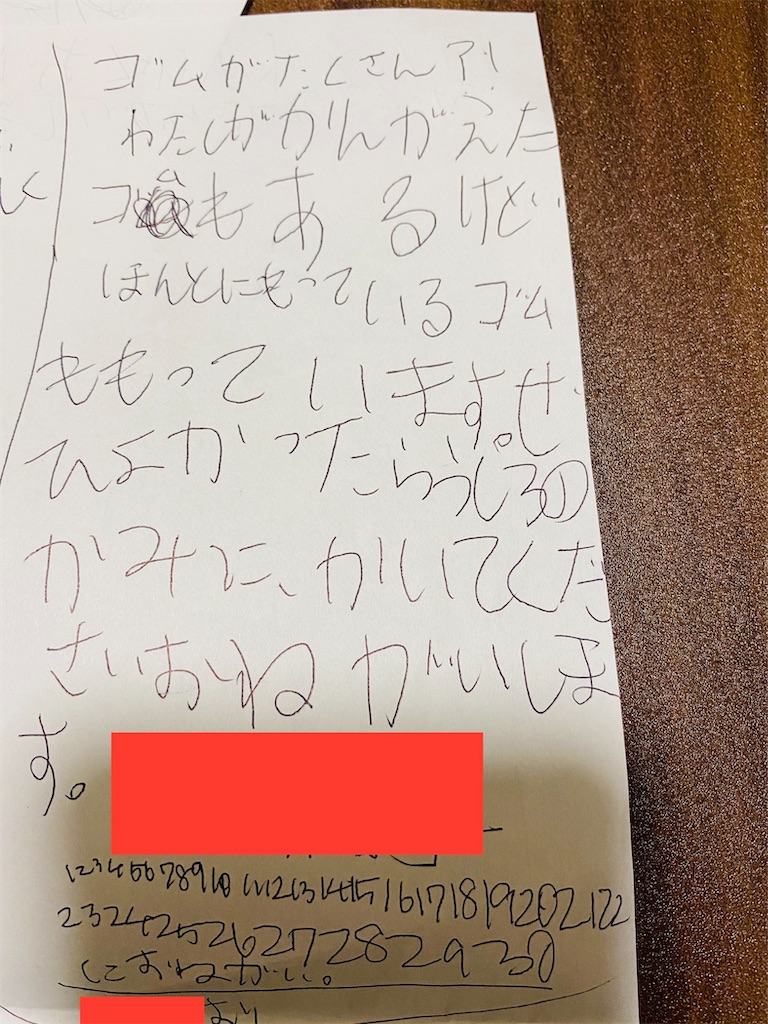 ゴムがたくさんア!
わたしがかんがえた
ゴムもあるけど
ほんとにもっているゴム
ももっています。ぜ
ひよかったらうしろの
かみに、かいてくだ
さいおねがいしま
す。
12345678910 1112131415 16171819202122
2324252627282930
におねがい。
より